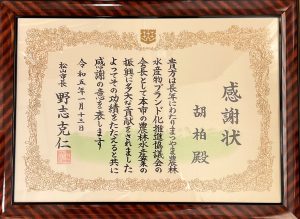 感謝状
胡柏殿
貴方は長年にわたりまつやま農林
水産物ブランド化推進協議会の
会長として本市の農林水産業の
振興に多大な貢献をされました
よってその功績をたたえると共に
感謝の意を表します
令和五年 月十三日
松山市長 野志克仁